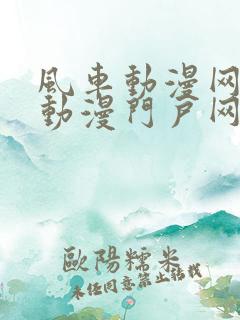 風車動漫网
動漫門户网
歐陽糯米
未经同意禁止转载